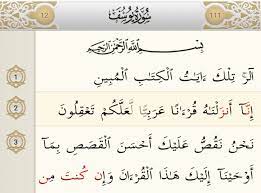 12 سُورَةُ يُوسُفَ 111
بِسْمِ اللَّهِ الرَّحْمَٰنِ الرَّحِيمِ
1 الٓر ۚ تِلْكَ ءَايَٰتُ الْكِتَٰبِ الْمُبِينِ
2 إِنَّآ أَنزَلْنَٰهُ قُرْءَٰنًا عَرَبِيًّا لَّعَلَّكُمْ تَعْقِلُونَ
3 نَحْنُ نَقُصُّ عَلَيْكَ أَحْسَنَ الْقَصَصِ بِمَآ
أَوْحَيْنَآ إِلَيْكَ هَٰذَا الْقُرْءَانَ وَإِن كُنتَ مِن